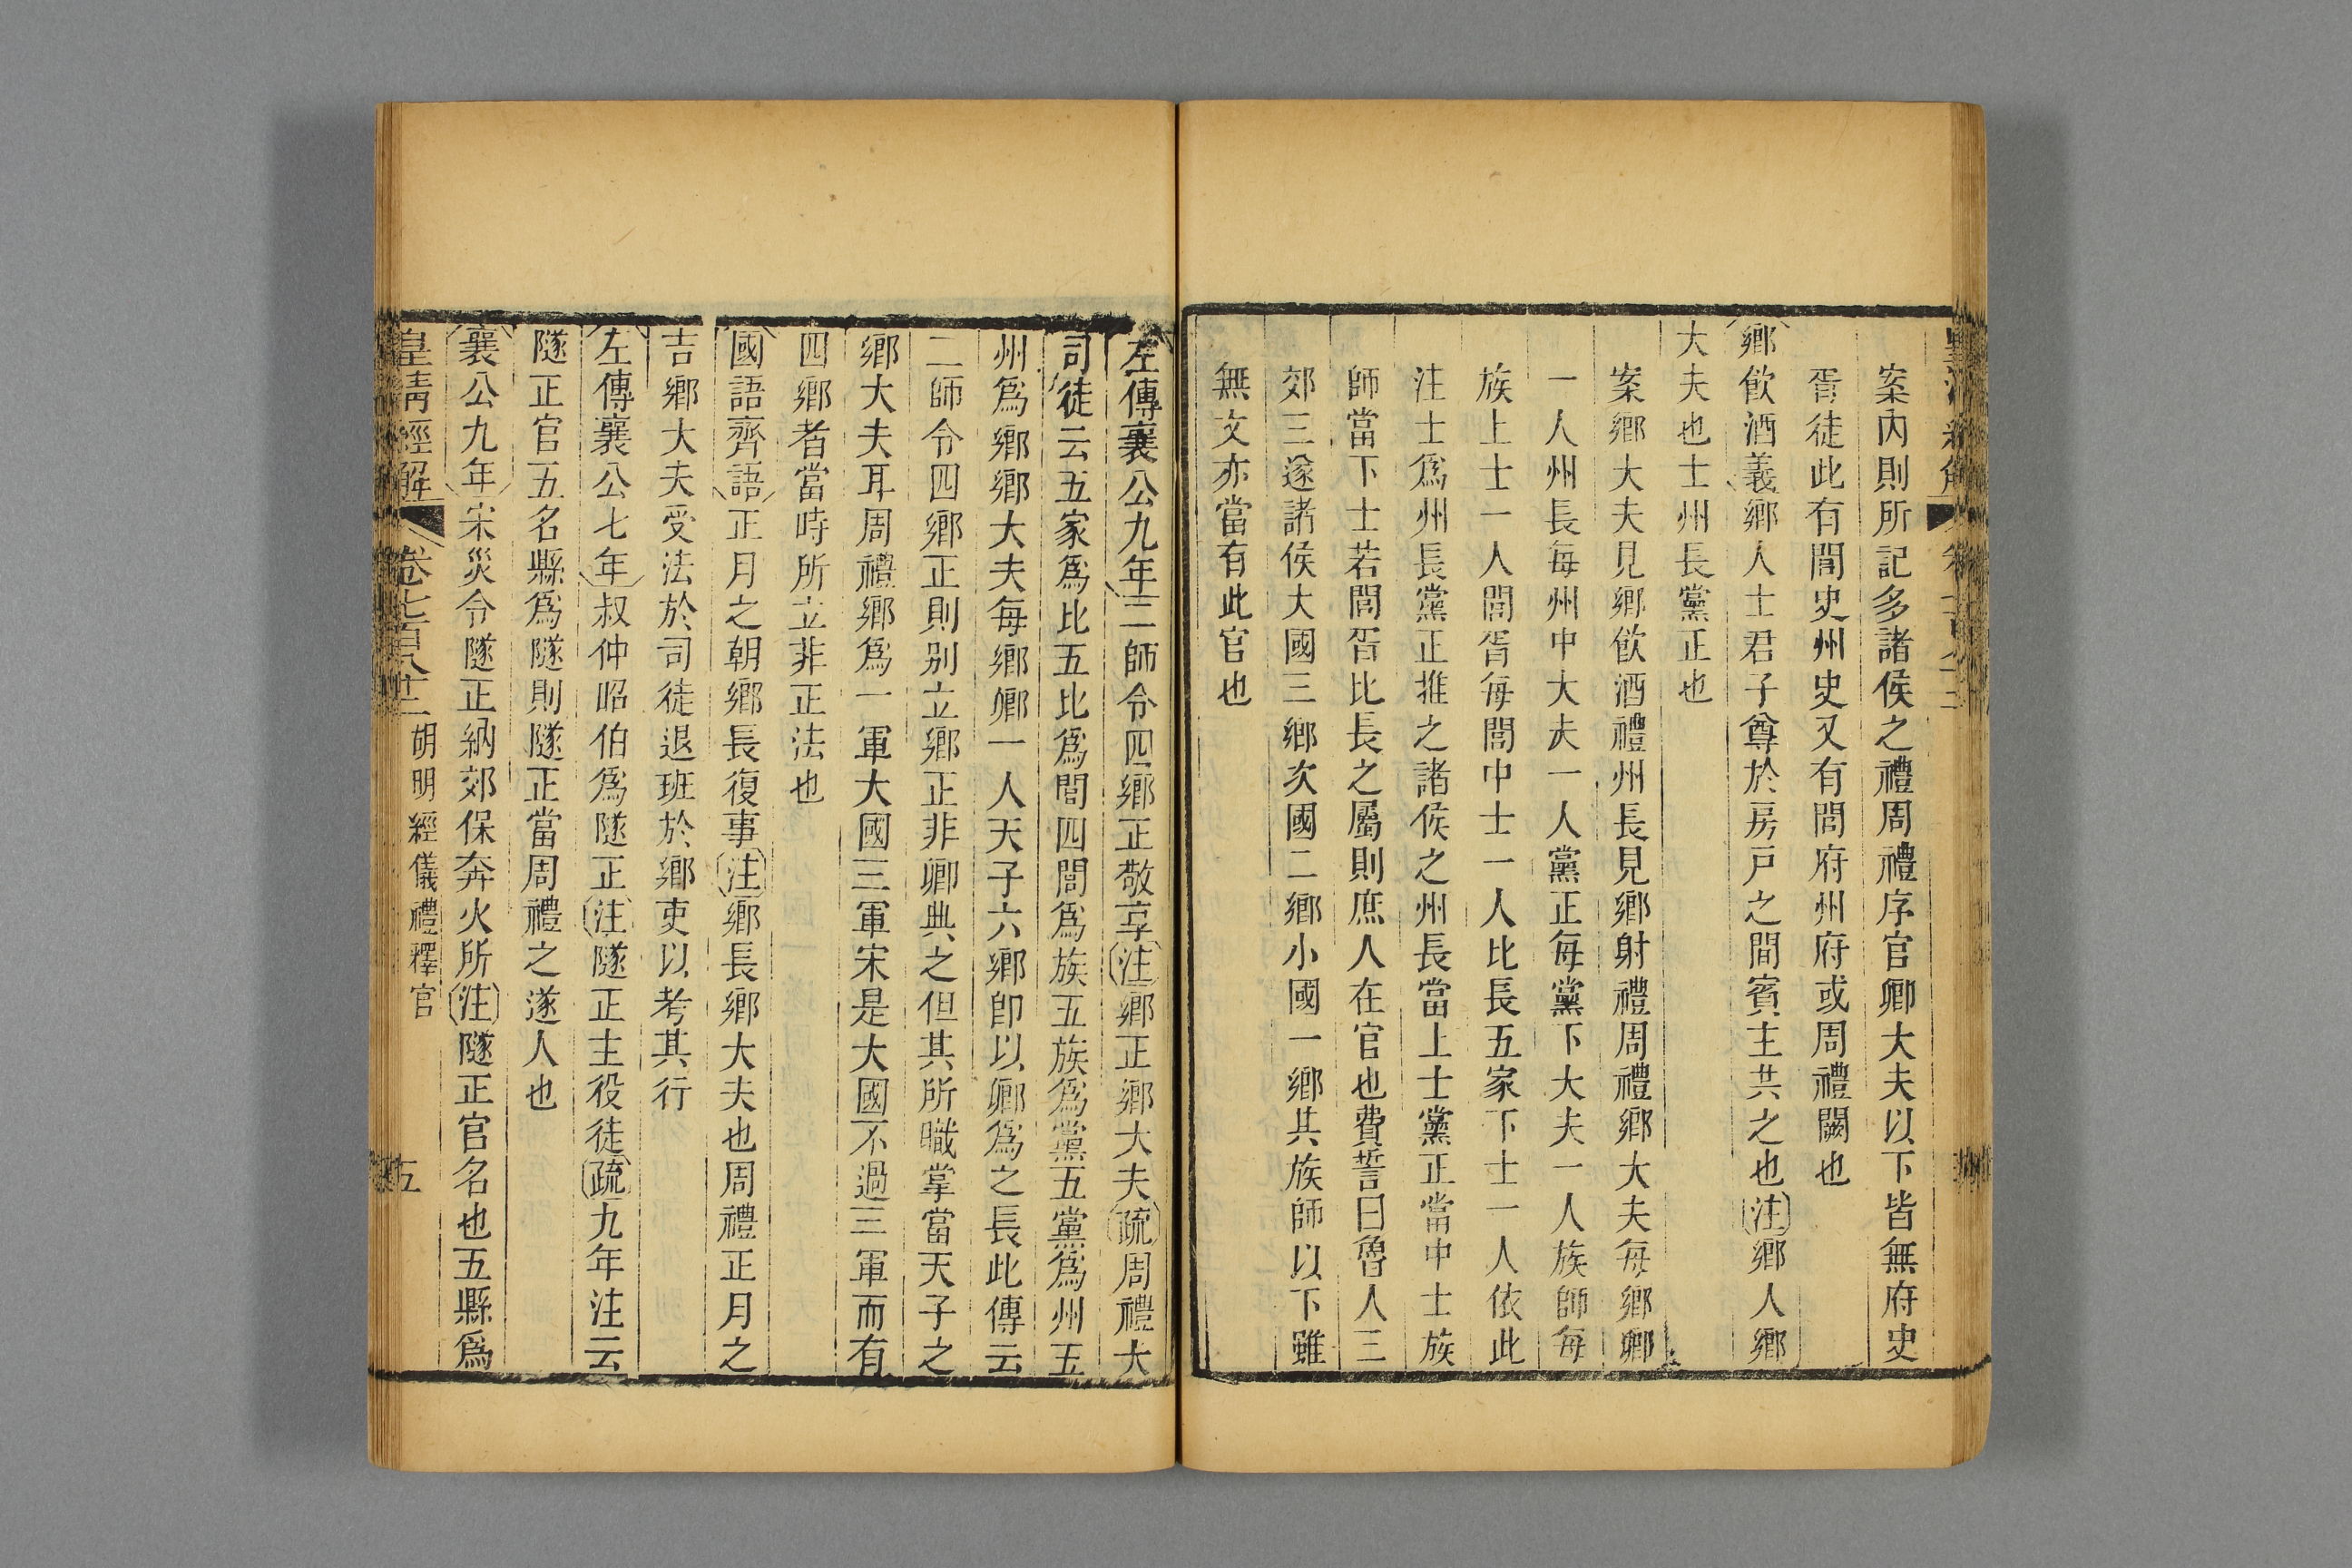 案內則所記多諸侯之禮周禮序官卿大夫以下皆無府史
胥徒此有閭史州史又有閭府州府或周禮闕也
鄉飲酒義鄉人士君子尊於房戶之間賓主共之也注鄉人鄉
大夫也士州長黨正也
案鄉大夫見鄉飲酒禮州長見鄉射禮周禮鄉大夫每鄉卿
一人州長每州中大夫一人黨正每黨下大夫一人族師每
族上士一人閭胥每閭中士一人比長五家下士一人依此
注士爲州長黨正推之諸侯之州長當上士黨正當中士族
師當下士若閭胥比長之屬則庶人在官也費誓曰魯人三
郊三遂諸侯大國三鄉次國二鄉小國一鄉其族師以下雖
無文亦當有此官也
左傳襄公九年二師令四鄉正敬享注鄉正鄉大夫疏周禮大
司徒云五家爲比五比爲閭四閭爲族五族爲黨五黨爲州五
州爲鄉鄉大夫每鄉卿一人天子六鄉卽以卿爲之長此傳云
二師令四鄉正則別立鄉正非卿典之但其所職掌當天子之
鄉大夫耳周禮鄉爲一軍大國三軍宋是大國不過三軍而有
四鄉者當時所立非正法也
國語齊語正月之朝鄉長復事注鄉長鄉大夫也周禮正月之
吉鄉大夫受法於司徒退班於鄉吏以考其行
左傳襄公七年叔仲昭伯爲隧正注隧正主役徒疏九年注云
隧正官五名縣爲隧則隧正當周禮之遂人也
襄公九年宋災令隧正納郊保奔火所注隧正官名也五縣爲
皇清經解 卷七百八十二 胡明經儀禮釋官 五